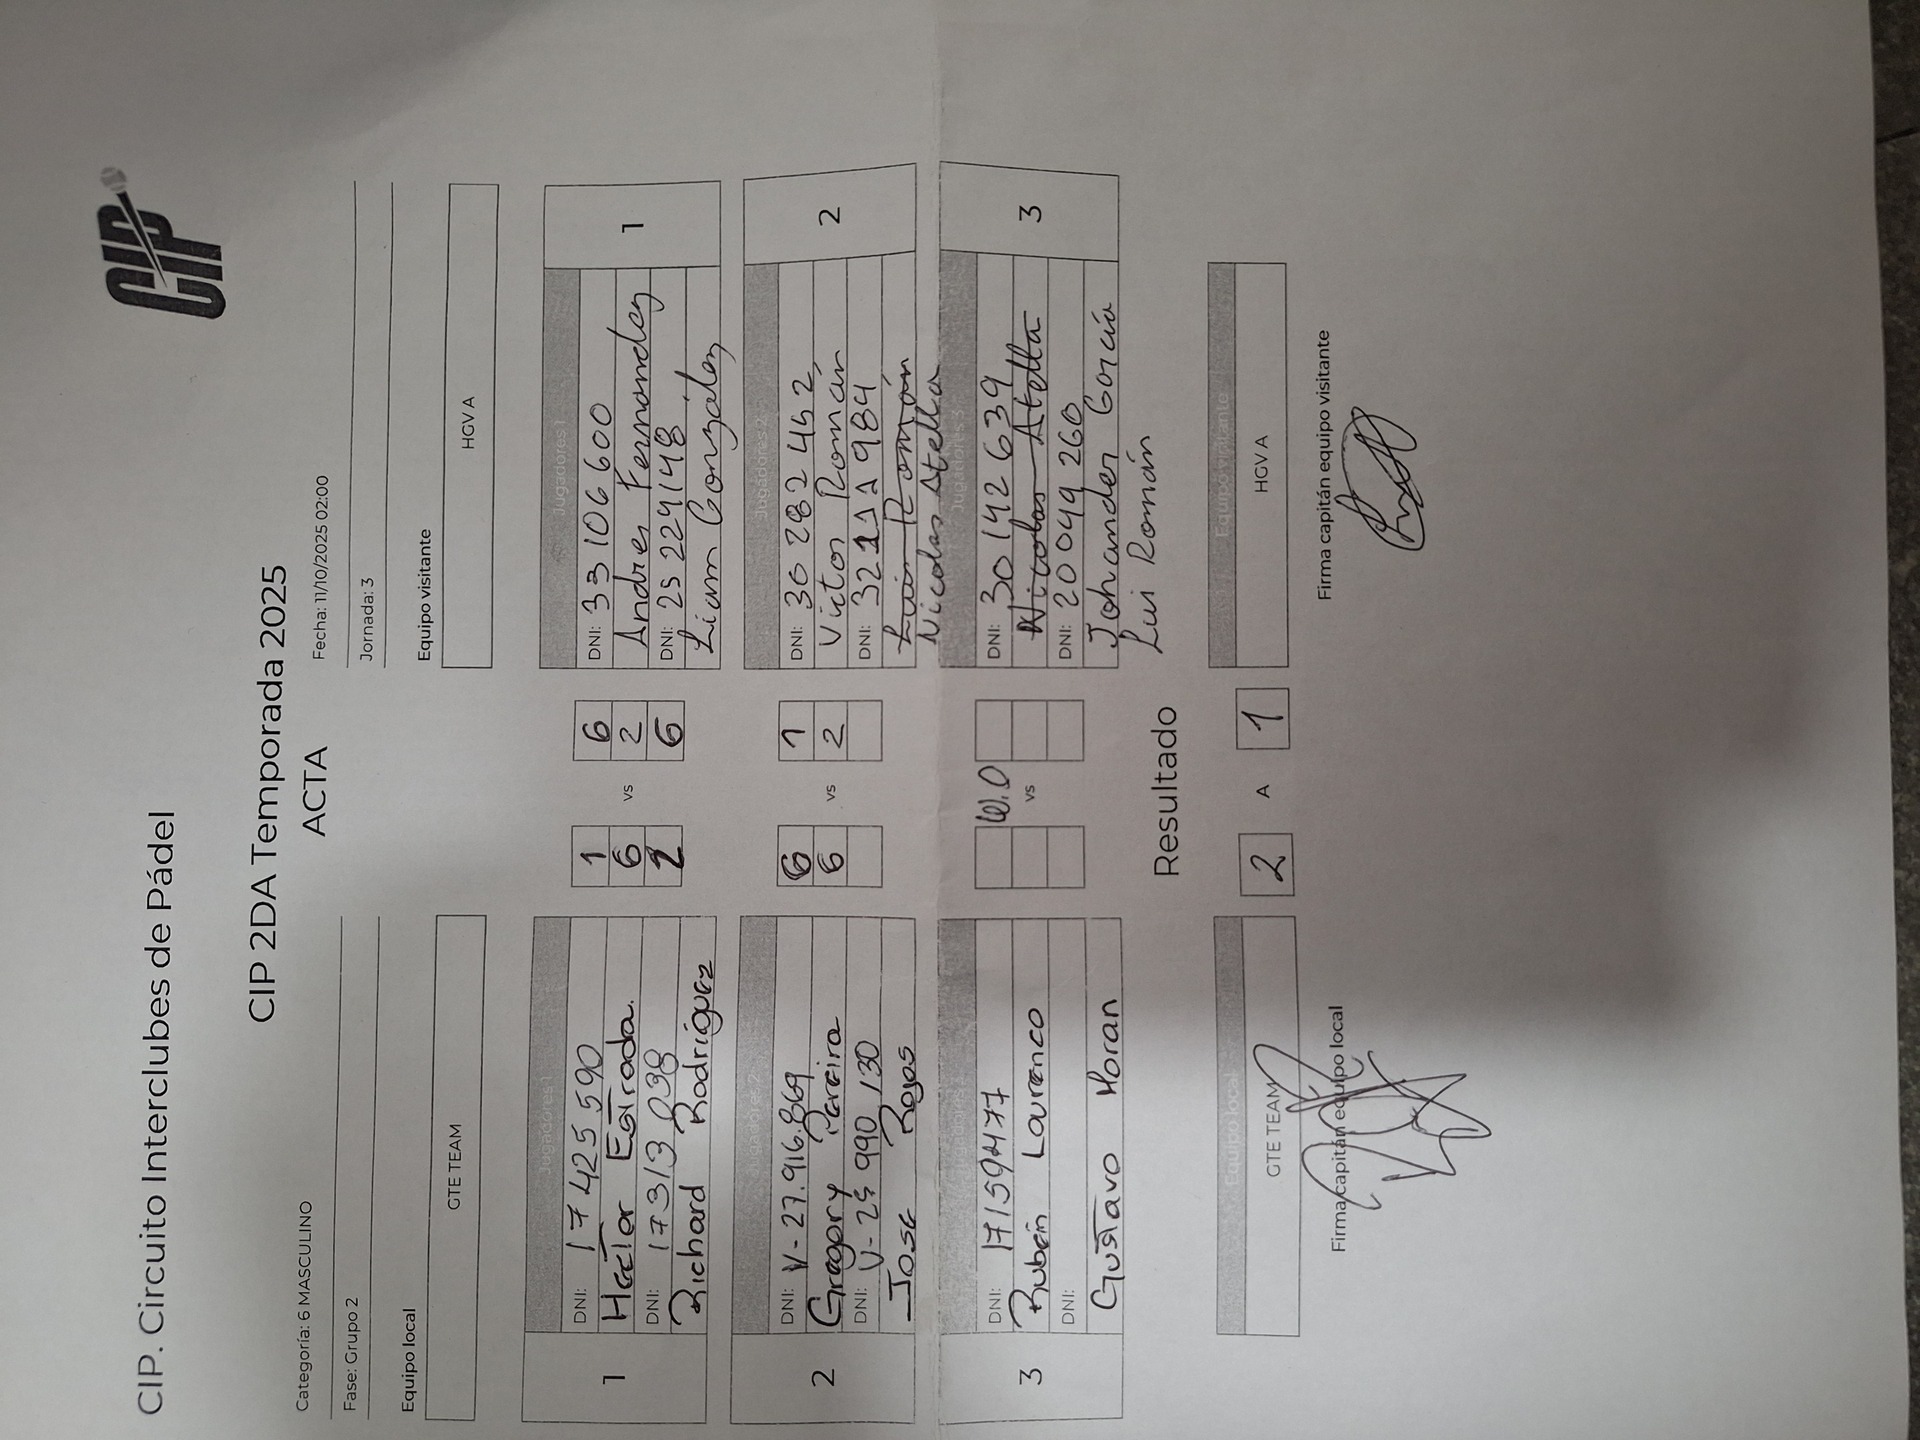 CIP. Circuito Interclubes de Pádel
CIP
CIP 2DA Temporada 2025
ACTA
Categoría: 6 MASCULINO
Fecha: 11/10/2025 02:00
Fase: Grupo 2
Jornada: 3
Equipo local
Equipo visitante
GTE TEAM
HGV A
Jugadores 1
Jugadores 1
1
DNI: 17425590
1
6
DNI: 33106600
1
Hector Estrada
6
vs
2
Andres Fernandez
DNI: 17313038
2
6
DNI: 25224148
Richard Rodríguez
Liam González
Jugadores 2
Jugadores 2
2
DNI: V-27.916.869
6
1
DNI: 30282452
2
Gregory Pereira
6
vs
2
Victor Román
DNI: V-25 990 130
DNI: 32111984
Jose Rojas
Luis Román
Nicolas Atella
Jugadores 3
Jugadores 3
3
DNI: 17159477
W.O
DNI: 30142639
3
Rubén Lourenco
vs
Nicolas Atella
DNI:
DNI: 20049260
Gustavo Moran
Johander García
Luis Román
Resultado
Equipo local
Equipo visitante
GTE TEAM
2
A
1
HGV A
Firma capitán equipo local
Firma capitán equipo visitante